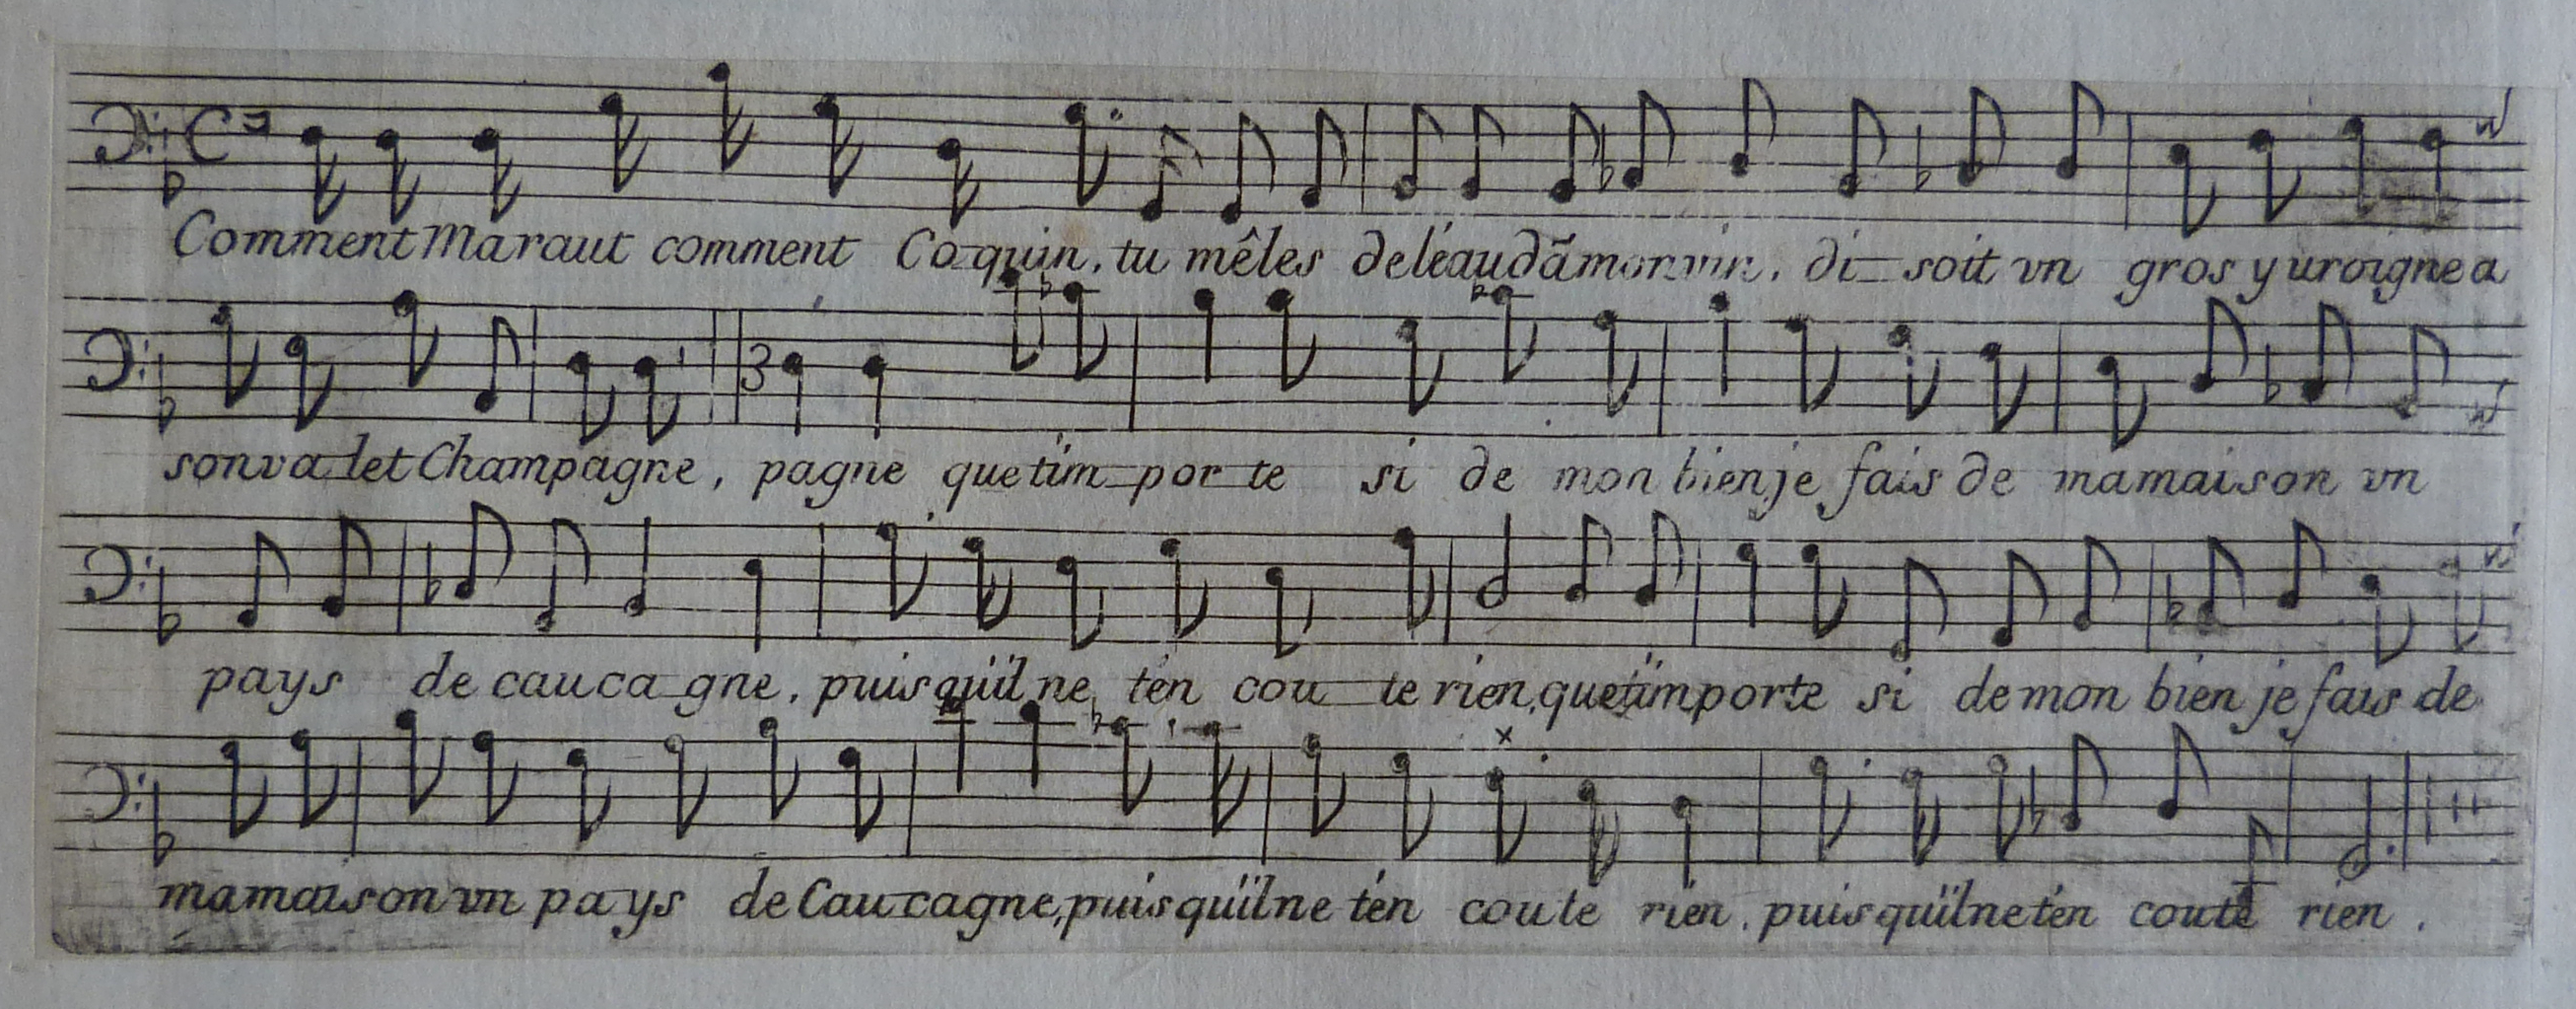 Comment Maraut comment Coquin, tu mêles deléau dãmon vin, di-soit vn gros yuroigne a
son va-let Champagne, pagne que tim-por-te si de mon bien je fais de mamaison vn
pays de cauca-gne, puis quïl ne tén cou-te rien, que timporte si de mon bien je fais de
mamaison vn pa-ys de Caucagne, puis quïl ne tén coute rien, puis quïl ne tén coute rien.